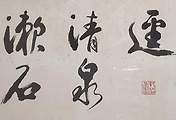 清泉
漱石